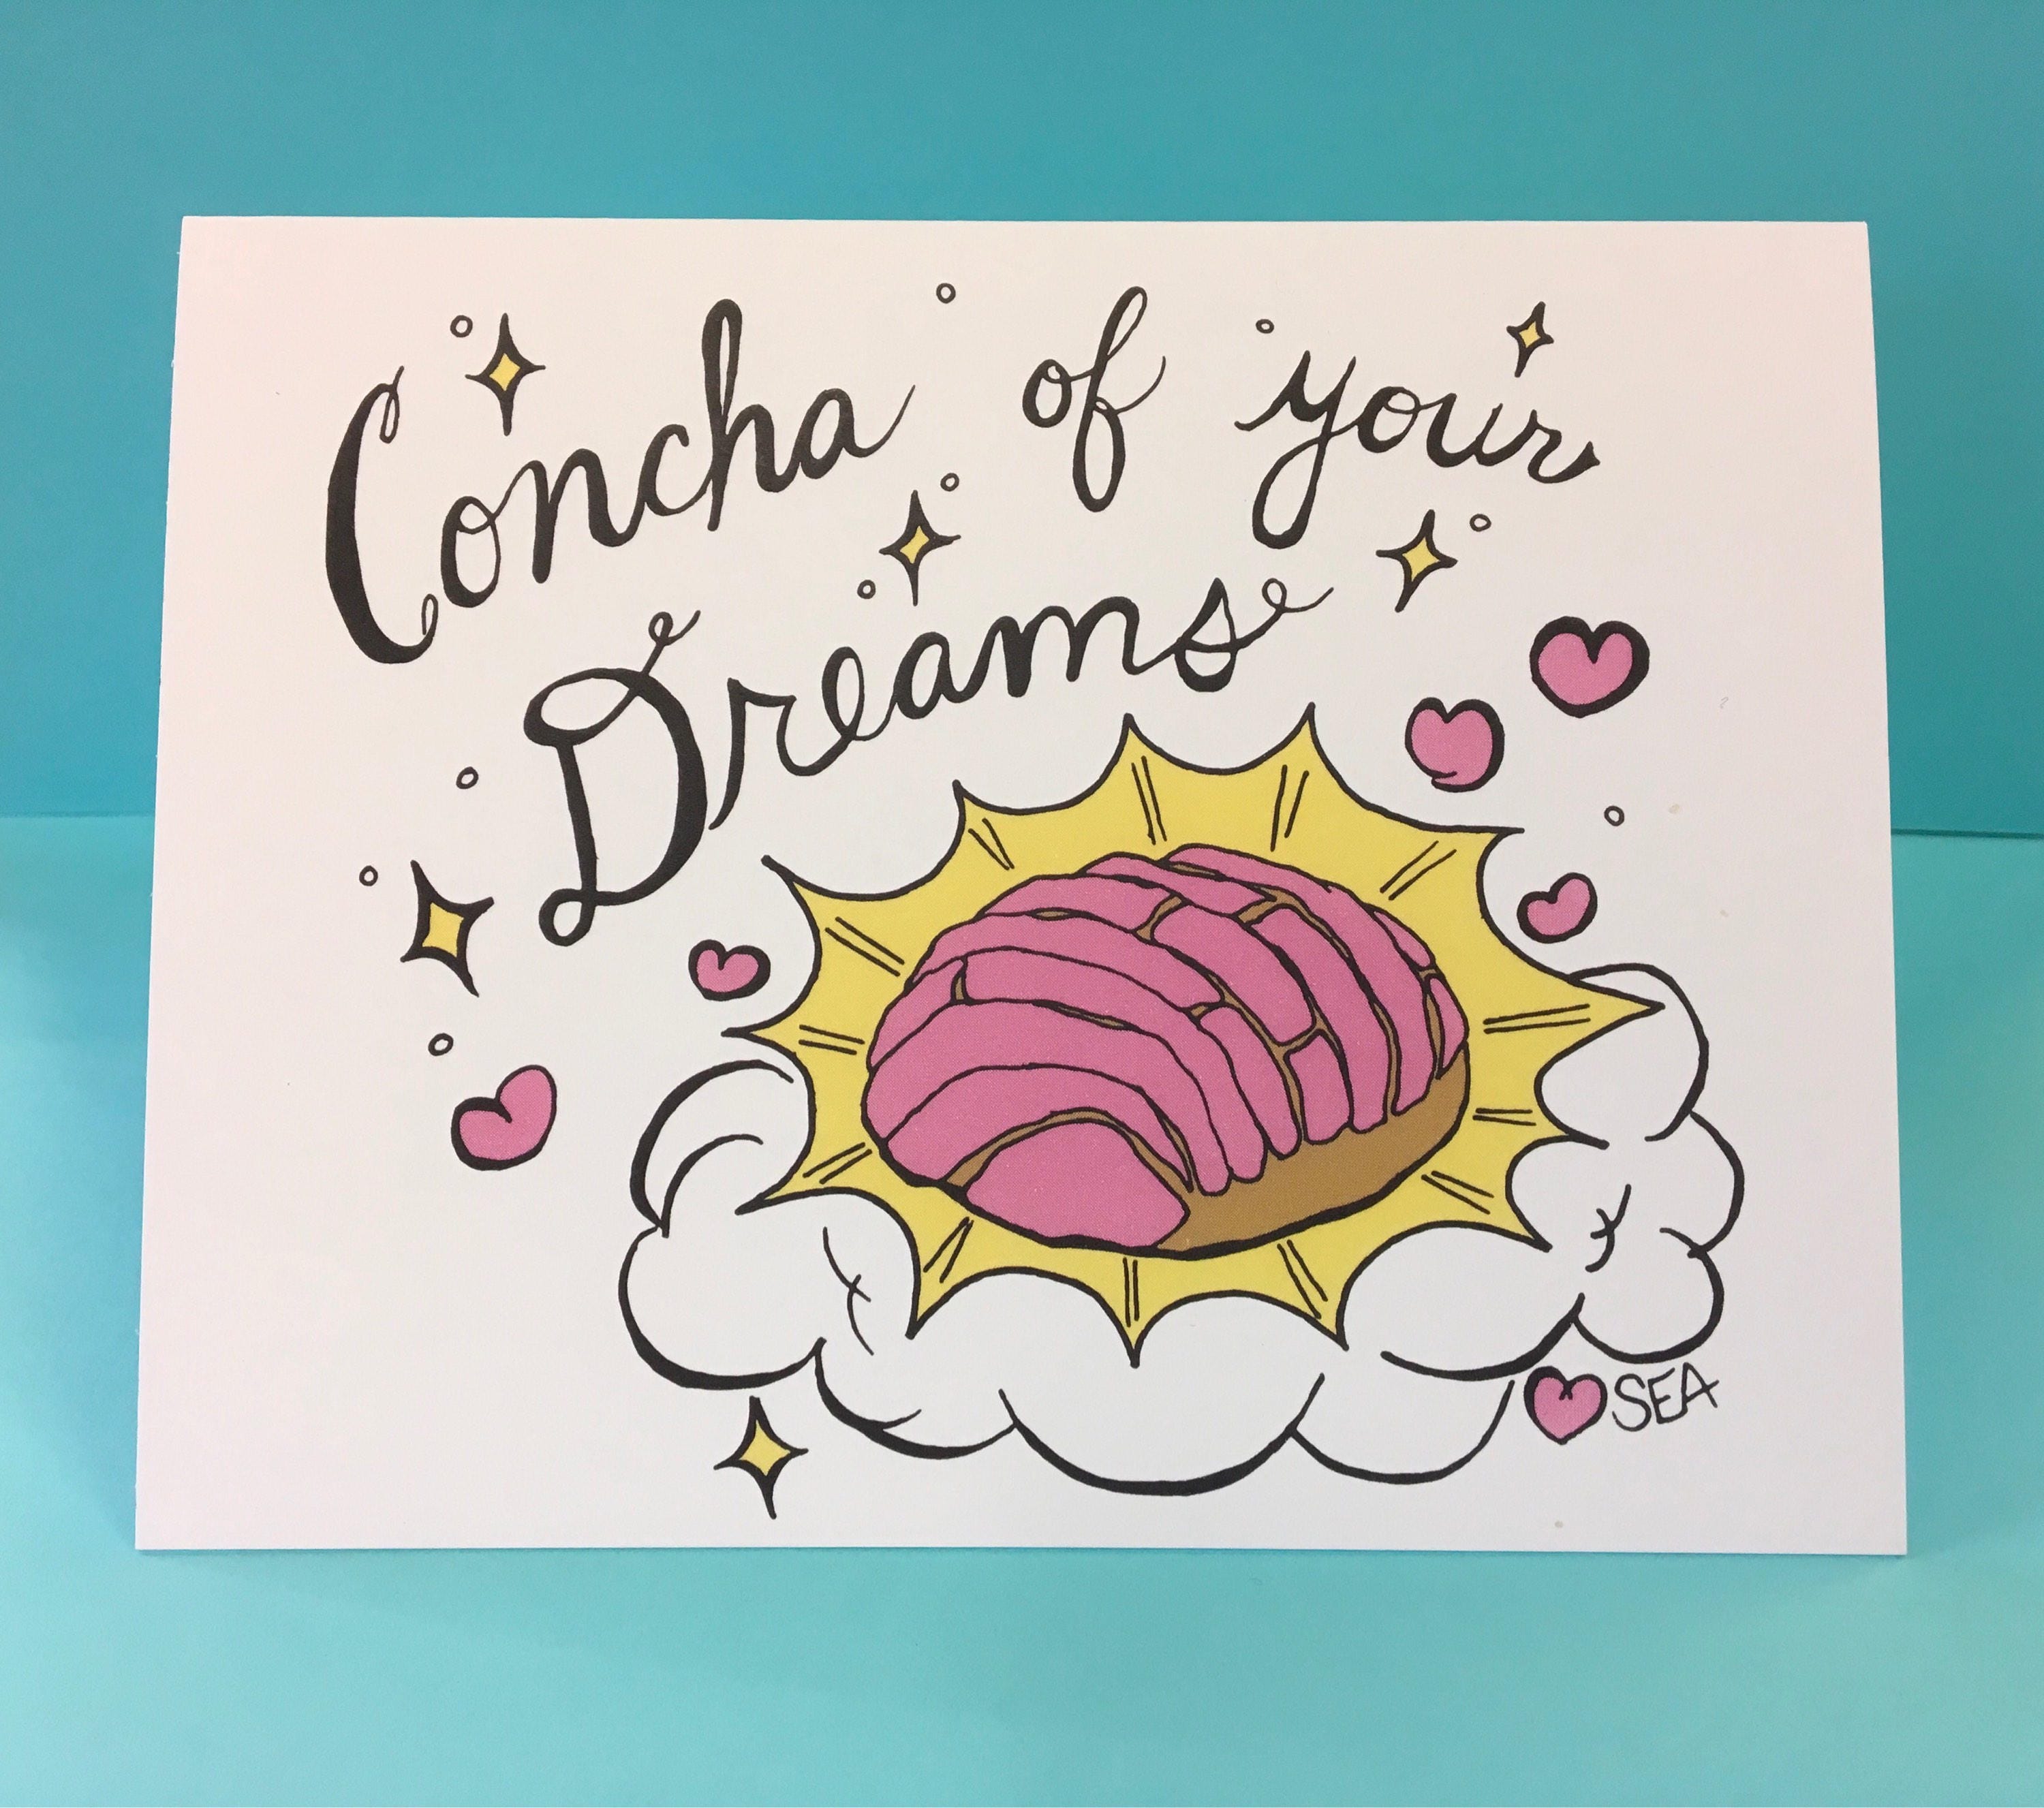 Concha of your
Dreams
SEA